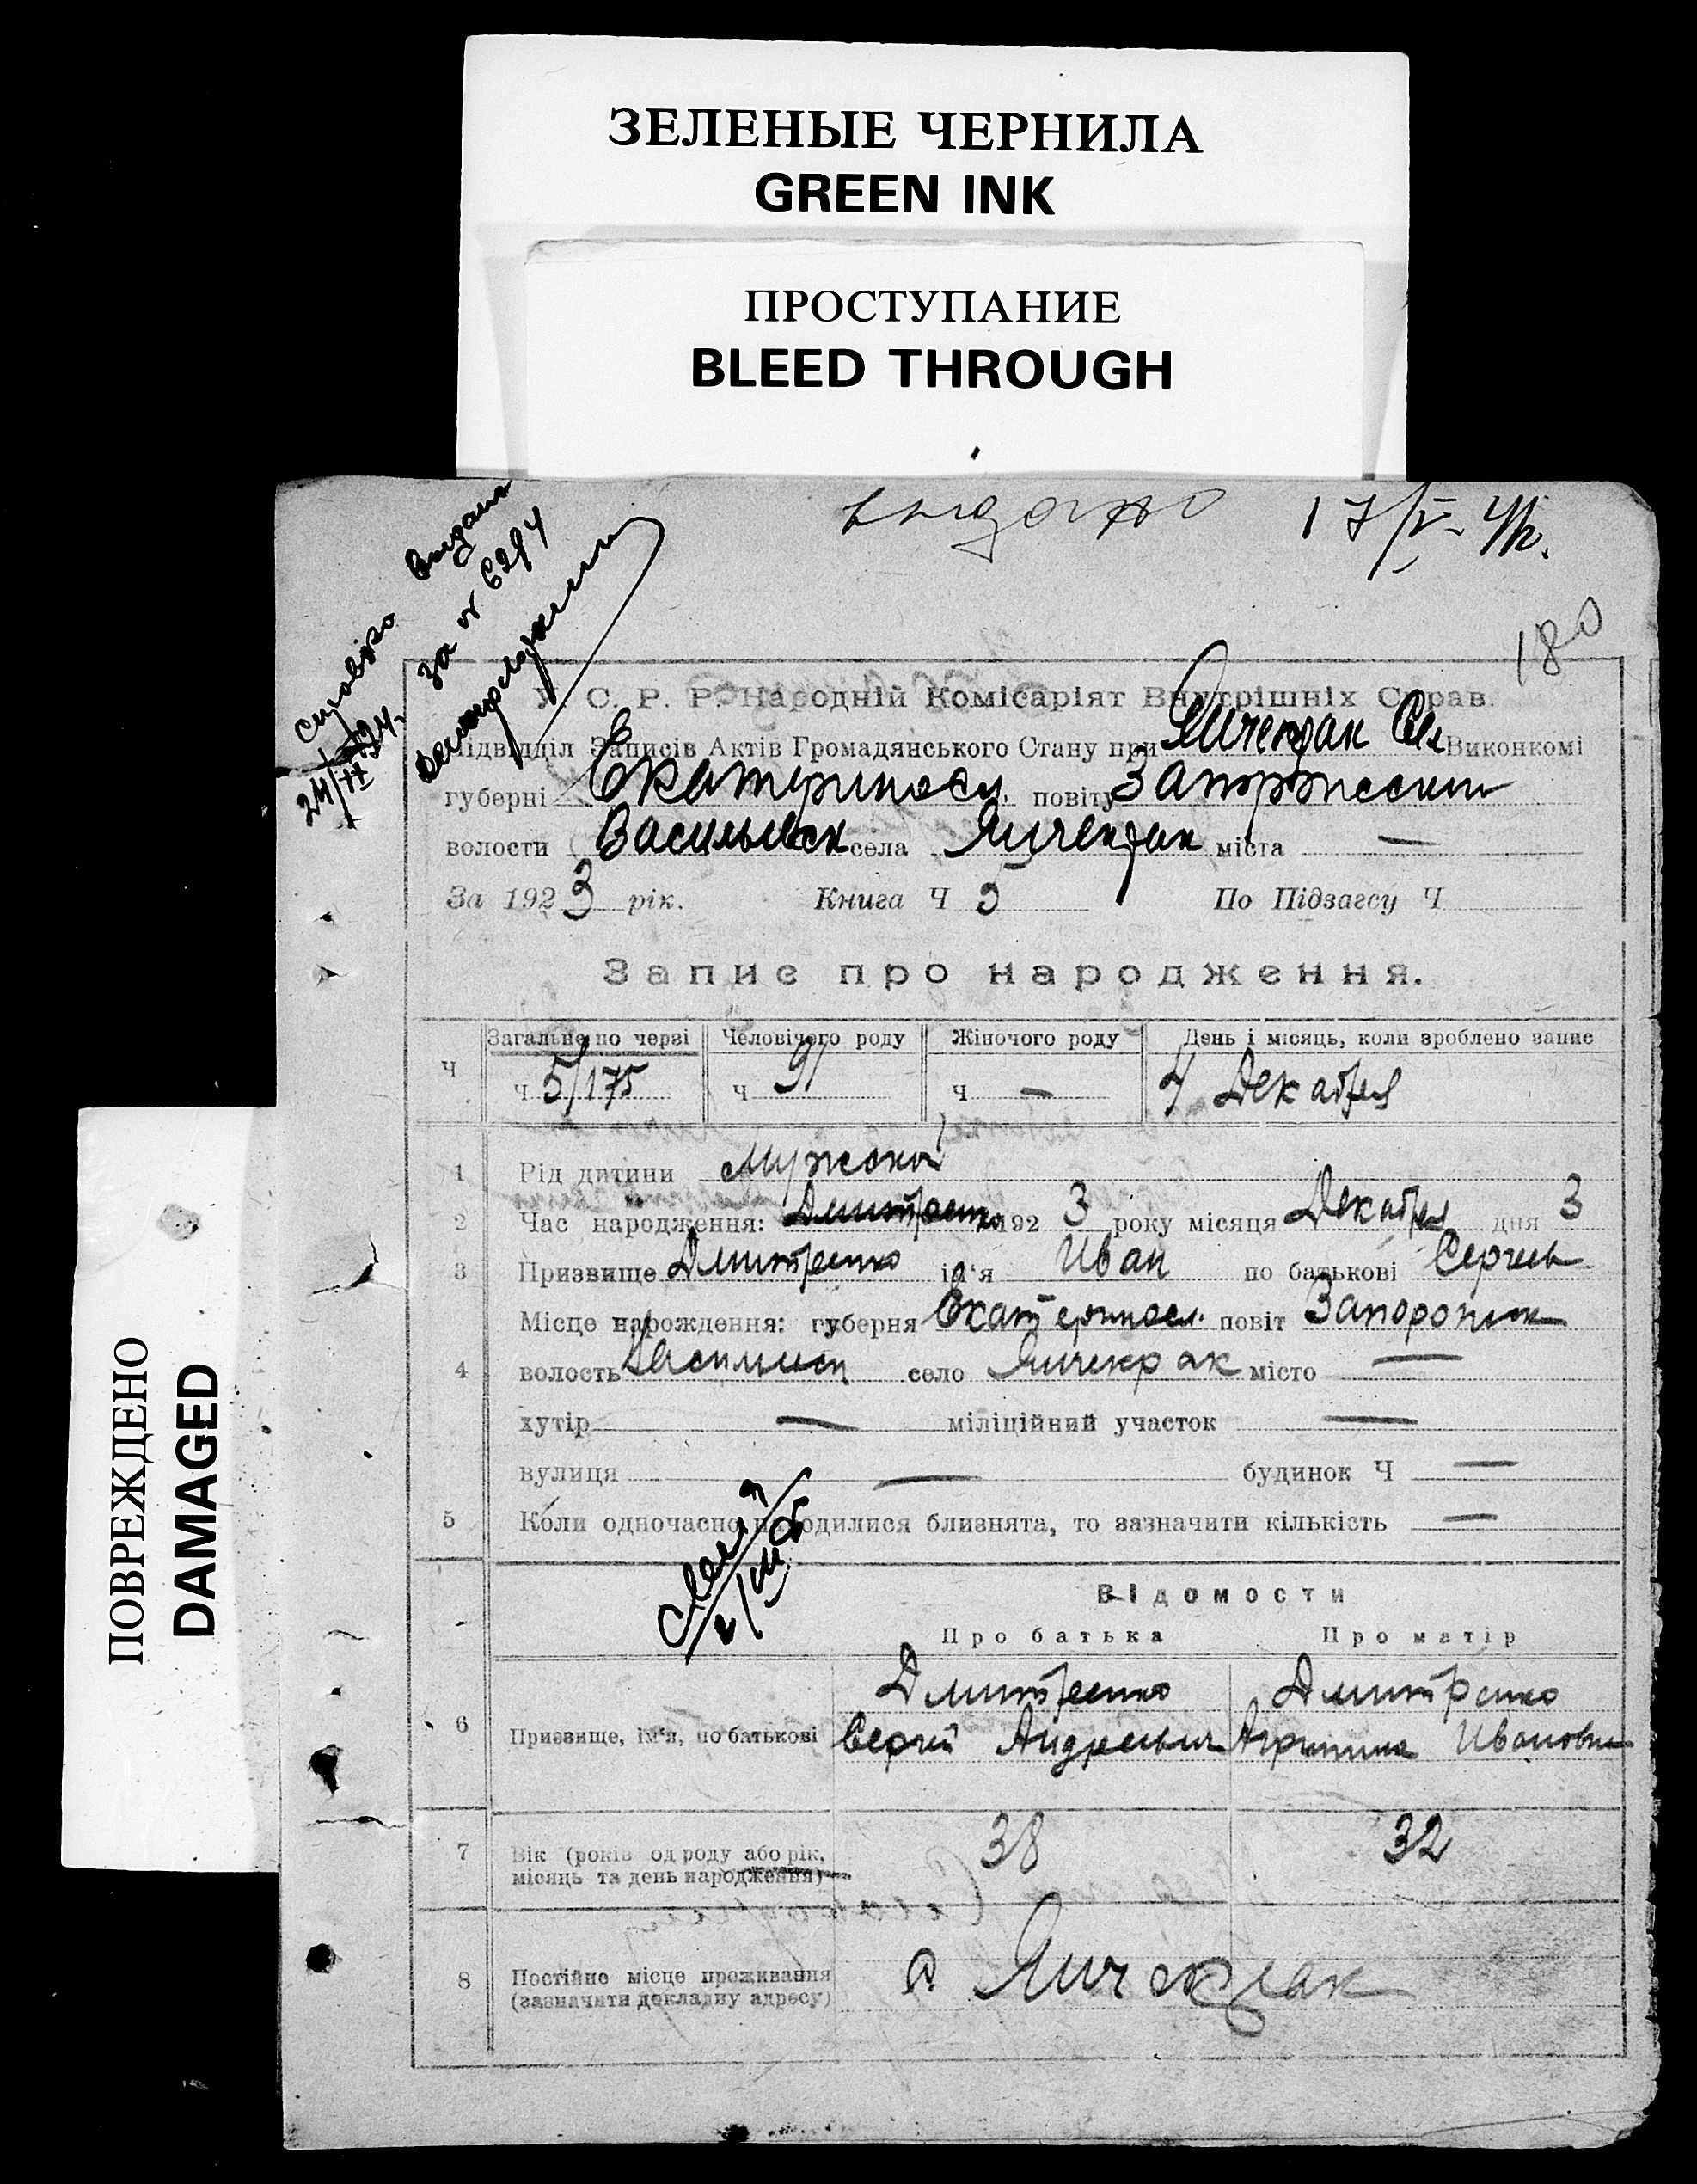 ЗЕЛЕНЫЕ ЧЕРНИЛА
GREEN INK
ПРОСТУПАНИЕ
BLEED THROUGH
ПОВРЕЖДЕНО
DAMAGED
выдано 17/V-
справка выдана
за № 6294
180
У. С. Р. Р. Народній Комісаріят Внутрішніх Справ.
Підвідділ Записів Актів Громадянського Стану при Янчекрак Сел Виконкомі
губерні Екатериносл. повіту Запорожский
волости Васильевск села Янчекрак міста —
За 1923 рік. Книга Ч 5 По Підзагсу Ч
Запис про народження.
Ч Загальне по черві Человічого роду Жіночого роду День і місяць, коли зроблено запис
Ч 5/175 Ч 91 Ч — 4 Декабря
1 Рід дитини Мужской
2 Час народження: Дмитренко 1923 року місяця Декабря дня 3
3 Призвище Дмитренко ім'я Иван по батькові Сергеев
Місце нарождення: губерня Екатериносл. повіт Запорожск
4 волость село Янчекрак місто —
хутір — міліційний участок —
вулиця — будинок Ч —
5 Коли одночасно народилися близнята, то зазначити кількість —
Відомости
Про батька Про матір
Дмитренко Дмитренко
6 Призвище, ім'я, по батькові Сергей Андреевич Агрипина Ивановна
7 Вік (років од роду або рік, 38 32
місяць та день народження)
8 Постійне місце проживання с. Янчекрак
(зазначити докладну адресу)